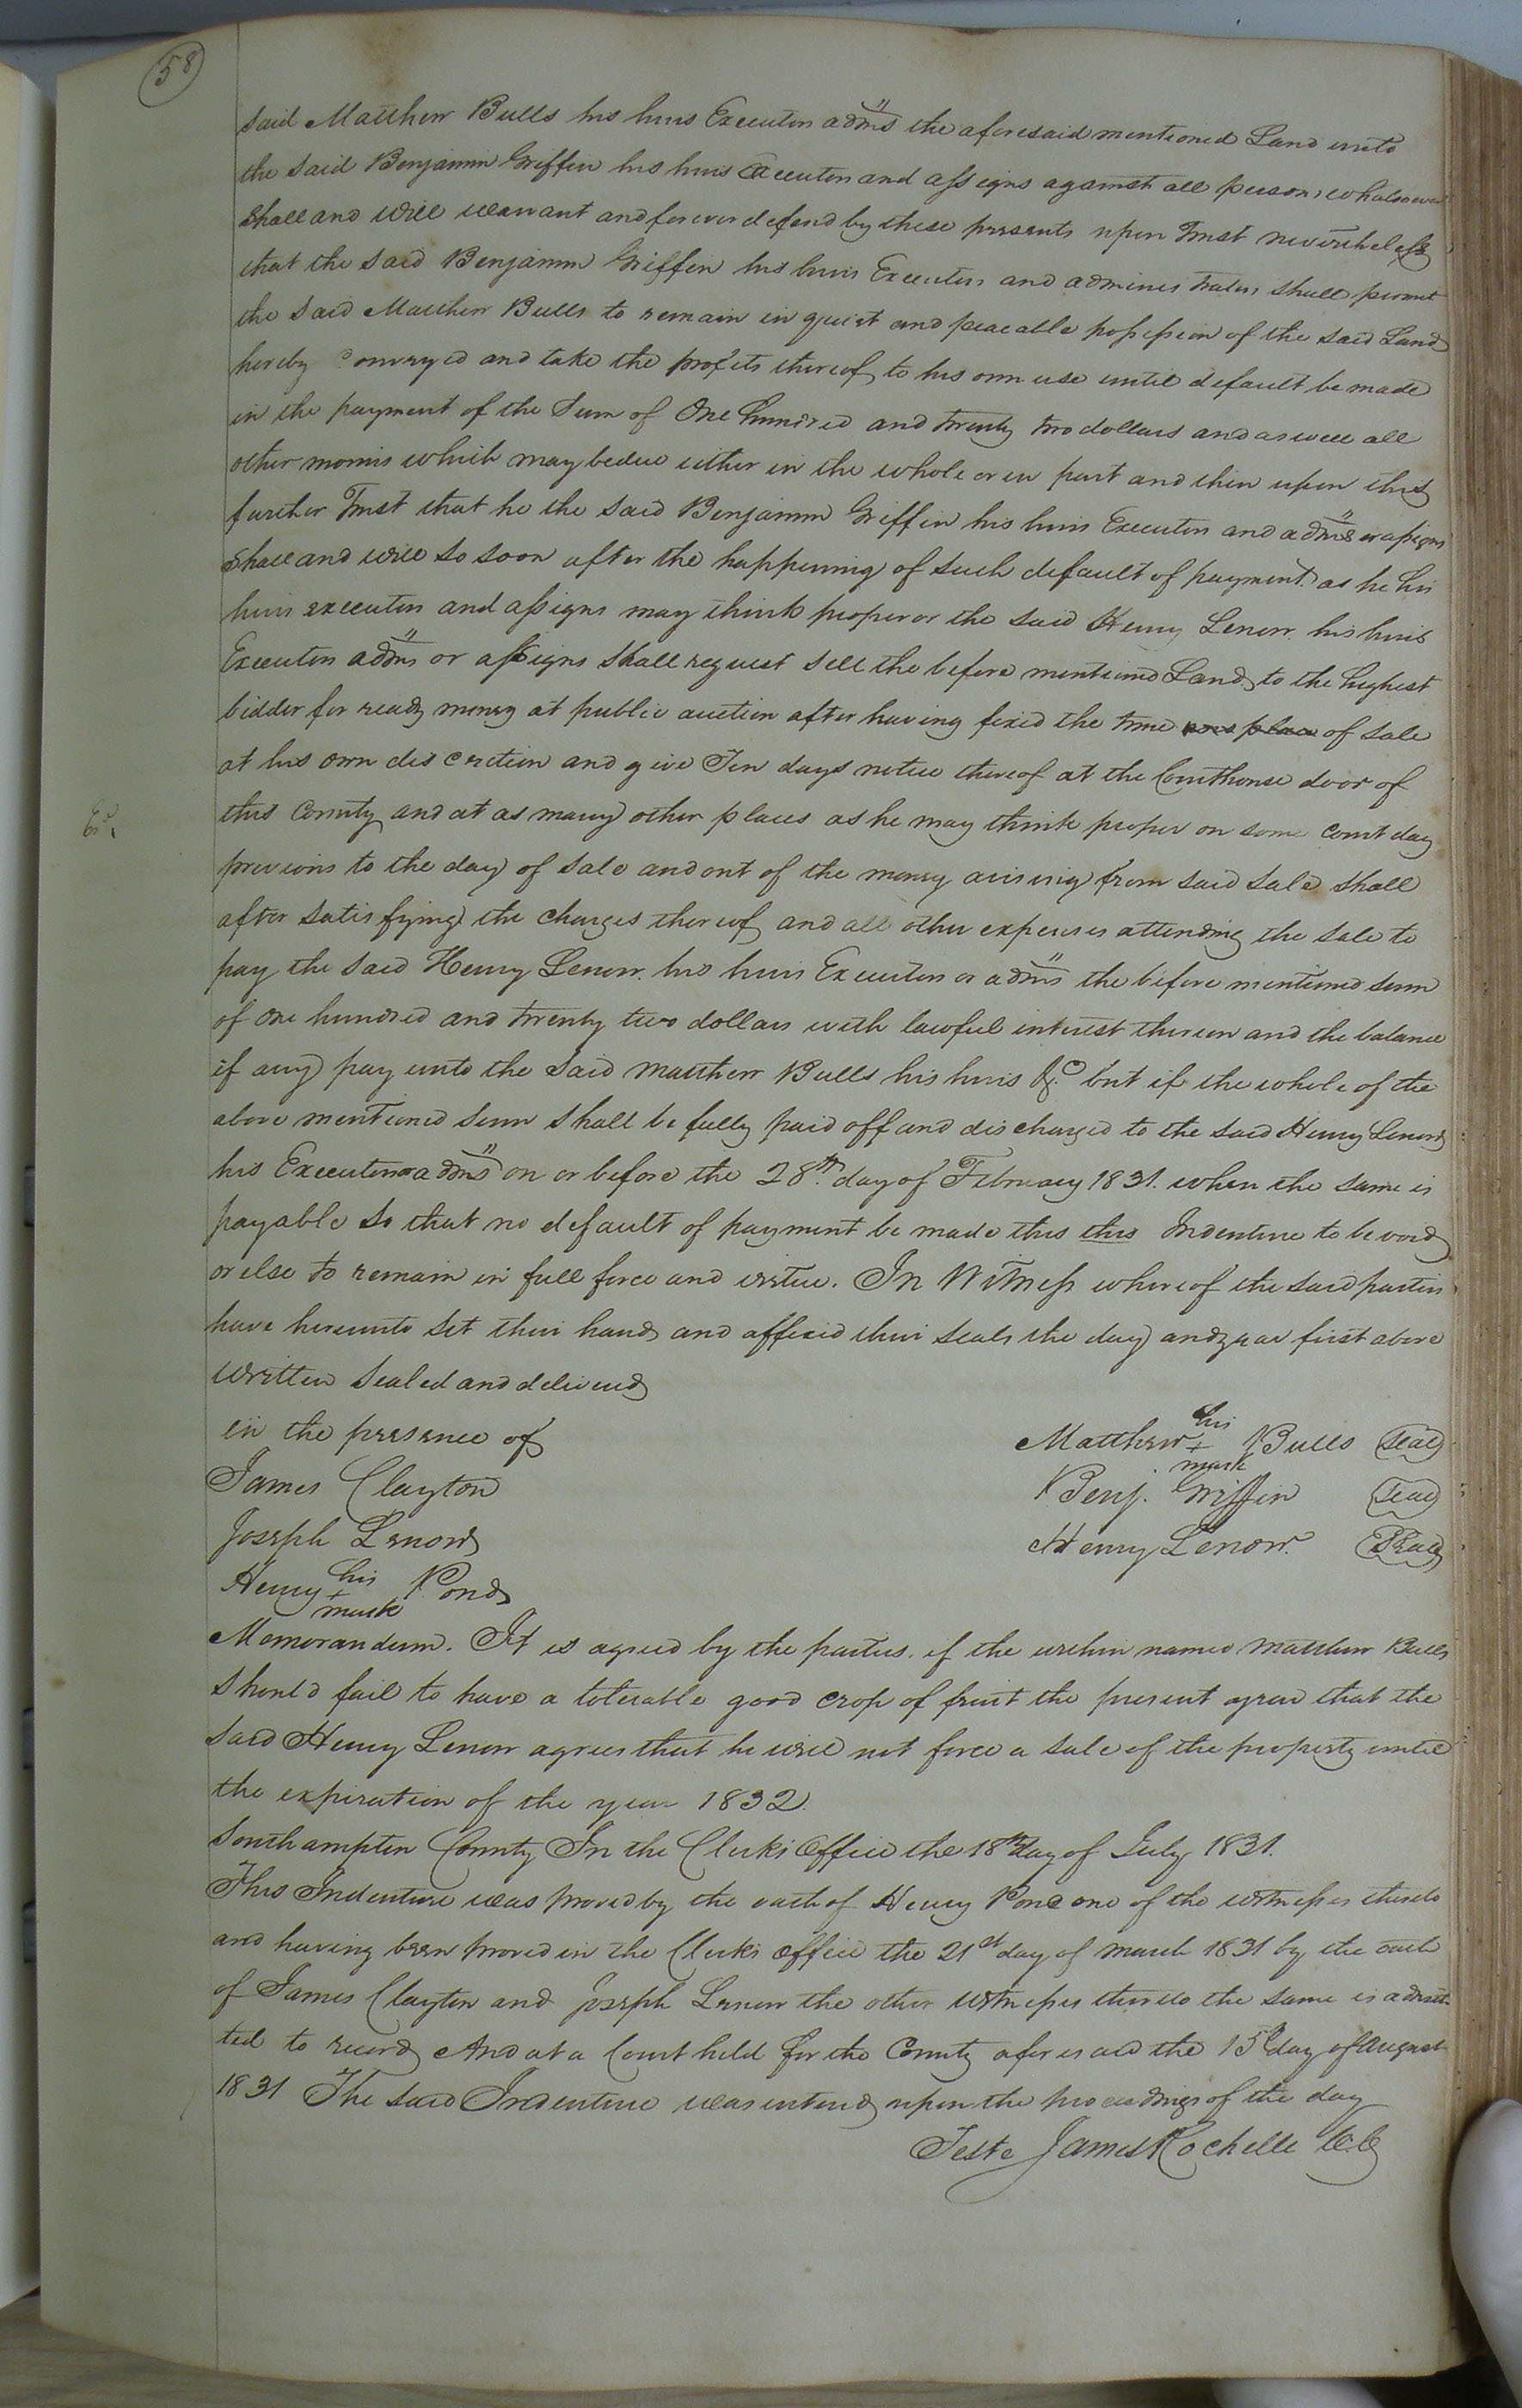 58
said Matthew Bulls his heirs Executors adms the aforesaid mentioned Land unto
the said Benjamin Griffin his heirs Executors and assigns against all persons whatsoever
shall and will warrant and forever defend by these presents upon Trust nevertheless
that the said Benjamin Griffin his heirs Executors and administrators shall permit
the said Matthew Bulls to remain in quiet and peaceable possession of the said Land
hereby conveyed and take the profits thereof to his own use until default be made
in the payment of the Sum of One hundred and twenty two dollars and as well all
other monies which may be due either in the whole or in part and then upon this
further Trust that he the said Benjamin Griffin his heirs Executors and adms or assigns
shall and will so soon after the happening of such default of payment as he his
heirs executors and assigns may think proper or the said Henry Lenow his heirs
Executors adms or assigns shall request sell the before mentioned Land to the highest
bidder for ready money at public auction after having fixed the time and place of sale
at his own discretion and give Ten days notice thereof at the Courthouse door of
this County and at as many other places as he may think proper on some court day
Ex.
previous to the day of sale and out of the money arising from said sale shall
after satisfying the charges thereof and all other expenses attending the sale to
pay the said Henry Lenow his heirs Executors or adms the before mentioned sum
of one hundred and twenty two dollars with lawful interest thereon and the balance
if any pay unto the said Matthew Bulls his heirs &c but if the whole of the
above mentioned sum shall be fully paid off and discharged to the said Henry Lenow
his Executors adms on or before the 28th. day of February 1831. when the same is
payable so that no default of payment be made this this Indenture to be void
or else to remain in full force and virtue. In Witness whereof the said parties
have hereunto set their hands and affixed their seals the day and year first above
written Sealed and delivered
in the presence of
James Clayton
Joseph Lenow
Henry his + mark Pond
Matthew his + mark Bulls Seal
Benj. Griffin Seal
Henry Lenow. Seal
Memorandum. It is agreed by the parties. if the within named Matthew Bulls
should fail to have a tolerable good crop of fruit the present year that the
said Henry Lenow agrees that he will not force a sale of the property until
the expiration of the year 1832.
Southampton County In the Clerk's Office the 18th day of July 1831.
This Indenture was proved by the oath of Henry Pond one of the witnesses thereto
and having been proved in the Clerks office the 21st day of March 1831 by the oath
of James Clayton and Joseph Lenow the other witnesses thereto the same is admit-
ted to record And at a Court held for the County aforesaid the 15th day of August
1831 The said Indenture was entered upon the proceedings of the day
Teste James Rochelle C.C